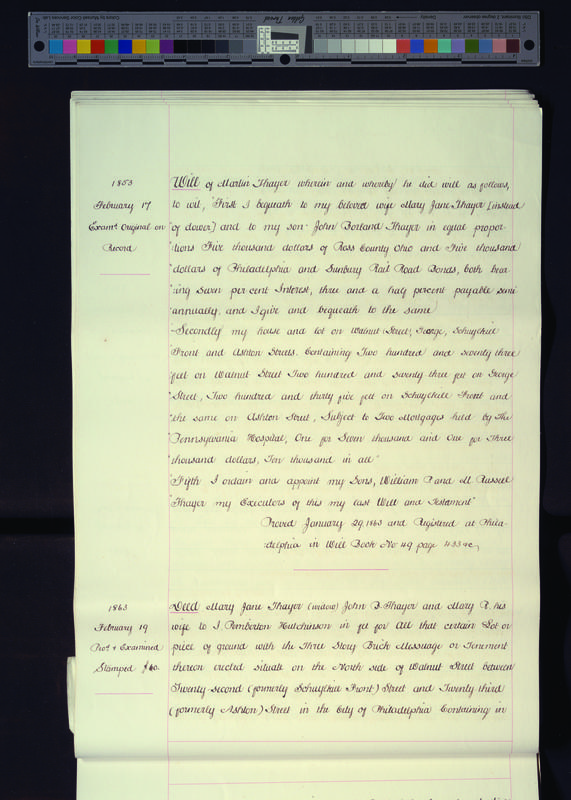 1853
February 17
Examd. Original on
Record
Will of Martin Thayer wherein and whereby he did will as follows,
to wit, "First I bequeath to my beloved wife Mary Jane Thayer [instead
"of dower] and to my son John Borland Thayer in equal propor-
"tions Five thousand dollars of Ross County Ohio and Five thousand
"dollars of Philadelphia and Sunbury Rail Road Bonds, both bear
"ing Seven per cent Interest, three and a half percent payable semi
"annually. and I give and bequeath to the same
"Secondly my house and lot on Walnut Street, George, Schuylkill
"Front and Ashton Streets. Containing Two hundred and seventy three
"feet on Walnut Street Two hundred and seventy-three feet on George
"Street, Two hundred and thirty five feet on Schuylkill Front and
"the same on Ashton Street, Subject to Two Mortgages held by The
"Pennsylvania Hospital, One for Seven thousand and One for Three
"thousand dollars, Ten thousand in all"
"Fifth I ordain and appoint my Sons, William R and M. Russell
"Thayer my Executors of this my last Will and Testament"
Proved January 29 1863 and Registered at Phila-
delphia in Will Book No 49 page 433 &c,
1863
February 19
Recd. & Examined
Stamped $40.
Deed Mary Jane Thayer (widow) John B. Thayer and Mary R. his
wife to I Pemberton Hutchinson in fee for All that certain Lot or
piece of ground with the Three Story Brick Messuage or Tenement
thereon erected situate on the North side of Walnut Street between
Twenty-second (formerly Schuylkill Front) Street and Twenty third
(formerly Ashton) Street in the City of Philadelphia Containing in